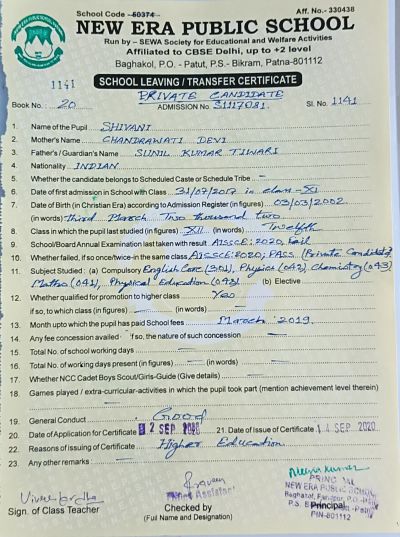 School Code - 50374
Aff. No.- 330438
NEW ERA PUBLIC SCHOOL
Run by – SEWA Society for Educational and Welfare Activities
Affiliated to CBSE Delhi, up to +2 level
Baghakol, P.O. - Patut, P.S.- Bikram, Patna-801112
1141
SCHOOL LEAVING / TRANSFER CERTIFICATE
PRIVATE CANDIDATE
Book No.: 20 ADMISSION No. S1117081. Sl. No. 1141
1. Name of the Pupil SHIVANI
2. Mother's Name CHANDRAWATI DEVI
3. Father's / Guardian's Name SUNIL KUMAR TIWARI
4. Nationality INDIAN
5. Whether the candidate belongs to Scheduled Caste or Schedule Tribe -
6. Date of first admission in School with Class 31/07/2017 in class-XI
7. Date of Birth (in Christian Era) according to Admission Register (in figures) 03/03/2002
(in words) Third March Two thousand two
8. Class in which the pupil last studied (in figures) XII (in words) Twelfth
9. School/Board Annual Examination last taken with result AISSCE:2020, Fail
10. Whether failed, if so once/twice-in the same class AISSCE:2020; PASS. (Private Candidate)
11. Subject Studied : (a) Compulsory English Core (301), Physics (042) Chemistry (043)
Maths (041), Physical Education (048) (b) Elective
12. Whether qualified for promotion to higher class Yes
if so, to which class (in figures) — (in words) —
13. Month upto which the pupil has paid School fees March' 2019.
14. Any fee concession availed - if so, the nature of such concession —
15. Total No. of school working days —
16. Total No. of working days present (in figures) — (in words) —
17. Whether NCC Cadet Boys Scout/Girls-Guide (Give details) —
18. Games played / extra-curricular-activities in which the pupil took part (mention achievement level therein)
19. General Conduct Good
20. Date of Application for Certificate 2 SEP 2020 21. Date of Issue of Certificate 4 SEP 2020
22. Reasons of issuing of Certificate Higher Education
23. Any other remarks —
Sign. of Class Teacher
Checked by
(Full Name and Designation)
NEW ERA PUBLIC SCHOOL
Principal
PIN-801112